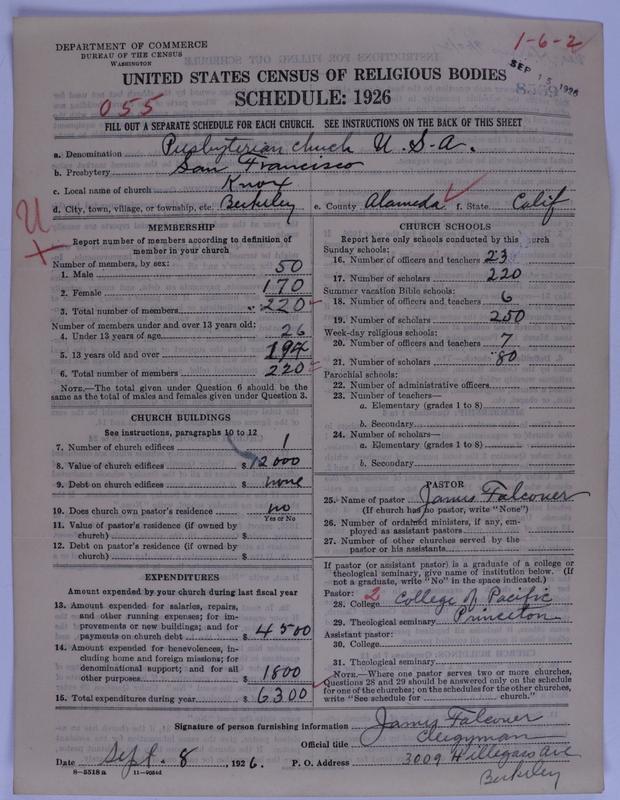 DEPARTMENT OF COMMERCE
BUREAU OF THE CENSUS
WASHINGTON
1-6-2
SEP 15 1926
UNITED STATES CENSUS OF RELIGIOUS BODIES
SCHEDULE: 1926
055
FILL OUT A SEPARATE SCHEDULE FOR EACH CHURCH. SEE INSTRUCTIONS ON THE BACK OF THIS SHEET
a. Denomination Presbyterian Church U. S. A.
b. Presbytery San Francisco
c. Local name of church Knox
d. City, town, village, or township, etc. Berkeley e. County Alameda f. State Calif
MEMBERSHIP
Report number of members according to definition of
member in your church
Number of members, by sex:
1. Male 50
2. Female 170
3. Total number of members 220
Number of members under and over 13 years old:
4. Under 13 years of age 26
5. 13 years old and over 194
6. Total number of members 220
NOTE.—The total given under Question 6 should be the
same as the total of males and females given under Question 3.
CHURCH BUILDINGS
See instructions, paragraphs 10 to 12
7. Number of church edifices 1
8. Value of church edifices $ 12000
9. Debt on church edifices $ none
10. Does church own pastor's residence no
Yes or No
11. Value of pastor's residence (if owned by
church) $
12. Debt on pastor's residence (if owned by
church) $
EXPENDITURES
Amount expended by your church during last fiscal year
13. Amount expended for salaries, repairs,
and other running expenses; for im-
provements or new buildings; and for
payments on church debt $ 4500
14. Amount expended for benevolences, in-
cluding home and foreign missions; for
denominational support; and for all
other purposes $ 1800
15. Total expenditures during year $ 6300
CHURCH SCHOOLS
Report here only schools conducted by this church
Sunday schools:
16. Number of officers and teachers 23
17. Number of scholars 220
Summer vacation Bible schools:
18. Number of officers and teachers 6
19. Number of scholars 250
Week-day religious schools:
20. Number of officers and teachers 7
21. Number of scholars 80
Parochial schools:
22. Number of administrative officers
23. Number of teachers—
a. Elementary (grades 1 to 8)
b. Secondary
24. Number of scholars—
a. Elementary (grades 1 to 8)
b. Secondary
PASTOR
25. Name of pastor James Falconer
(If church has no pastor, write "None")
26. Number of ordained ministers, if any, em-
ployed as assistant pastors
27. Number of other churches served by the
pastor or his assistants
If pastor (or assistant pastor) is a graduate of a college or
theological seminary, give name of institution below. (If
not a graduate, write "No" in the space indicated.)
Pastor: 2
28. College College of Pacific
29. Theological seminary Princeton
Assistant pastor:
30. College
31. Theological seminary
NOTE.—Where one pastor serves two or more churches,
Questions 28 and 29 should be answered only on the schedule
for one of the churches; on the schedules for the other churches,
write "See schedule for church."
Signature of person furnishing information James Falconer
Official title Clergyman
Date Sept. 8, 1926. P. O. Address 3009 Hillegass Ave
Berkeley
8-5518a 11-9054d